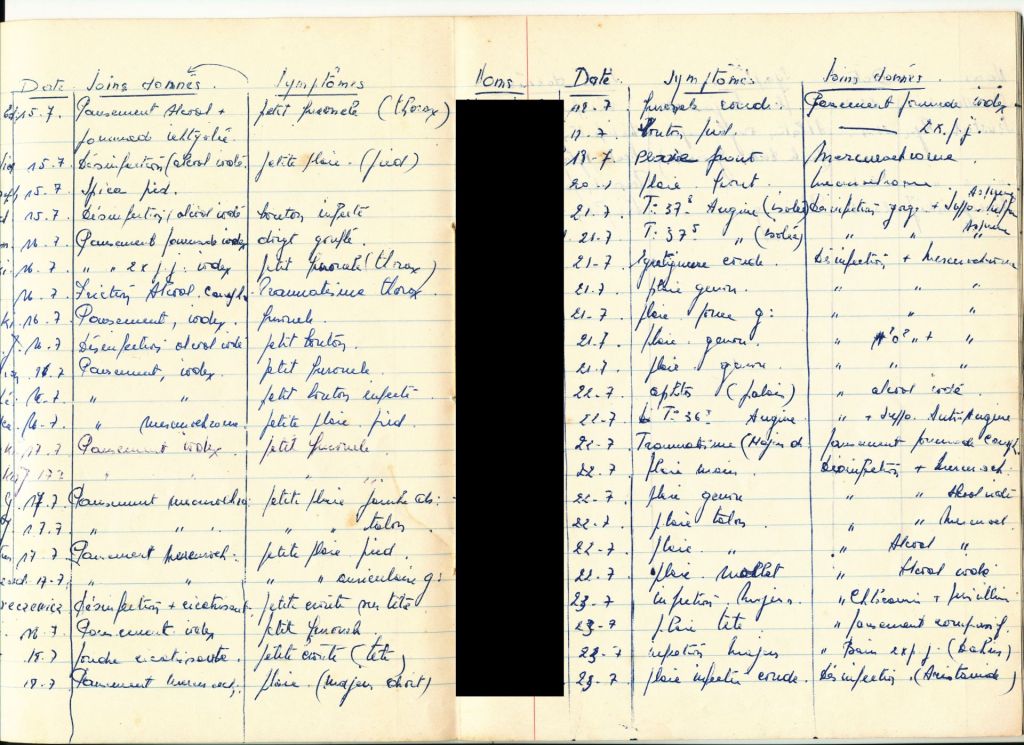 Date Soins donnés Symptômes
15.7. Pansement Alcool + petit furoncle (thorax)
pommade
15.7 Désinfection (alcool iodé petite plaie (pied)
15.7. Spica pied.
15.7. Désinfection (alcool iodé bouton infecté
16.7. Pansement pommade iodex doigt gonflé.
16.7. " " 2x p. j. iodex petit furoncle (thorax)
16.7. Friction Alcool camph Traumatisme thorax
16.7. Pansement, iodex. furoncle.
16.7. Désinfection alcool iodé petit bouton.
16.7 Pansement, iodex. petit furoncle.
16.7. " " petit bouton infecté
16.7. " mercurochrome petite plaie pied.
17.7. Pansement iodex. petit furoncle
17.7 " " "
17.7. Pansement petite plaie jambe
17.7. " " " " talon
17.7. Pansement mercuroch: petite plaie pied.
17.7. " " " " auriculaire g:
désinfection + cicatrisant petite croûte sur tête
18.7. Pansement iodex petit furoncle
18.7 Poudre cicatrisante. petite croûte (tête)
18.7 Pansement mercuroch. plaie. (majeur droit)
Noms Date Symptômes Soins donnés.
18.7 furoncle coude. Pansement pommade iodex
18.7 Bouton pied. —— 2x. p. j
18-7 Plaie front Mercurochrome
20.7 plaie front. Mercurochrome
21.7 T: 37² Angine (isolée) Désinfection gorge + Suppo. Aspirine
21.7 T: 37⁵ " (isolée) " " " Aspirine
21-7 égratignure coude. Désinfection + Mercurochrome
21.7 plaie genou. " "
21.7 plaie g: " "
21.7 plaie genou. " " + "
21.7 plaie genou " " "
22.7 aphtes (palais) " alcool iodé
22.7 T: 36² Angine " + Suppo. Anti-Angine
22-7 Traumatisme (Majeur d pansement pommade camph
22.7 plaie main. Désinfection + Mercuroch:
22-7 plaie genou " " Alcool iodé
22.7 plaie talon " " Mercuroch.
22-7 plaie " " Alcool "
22.7 plaie mollet " Alcool iodé
23.7 infection
23-7 plaie tête " pansement compressif.
23.7 infection " Bain 2x p. j. (Dakin)
23.7 plaie infectée coude. Désinfection.